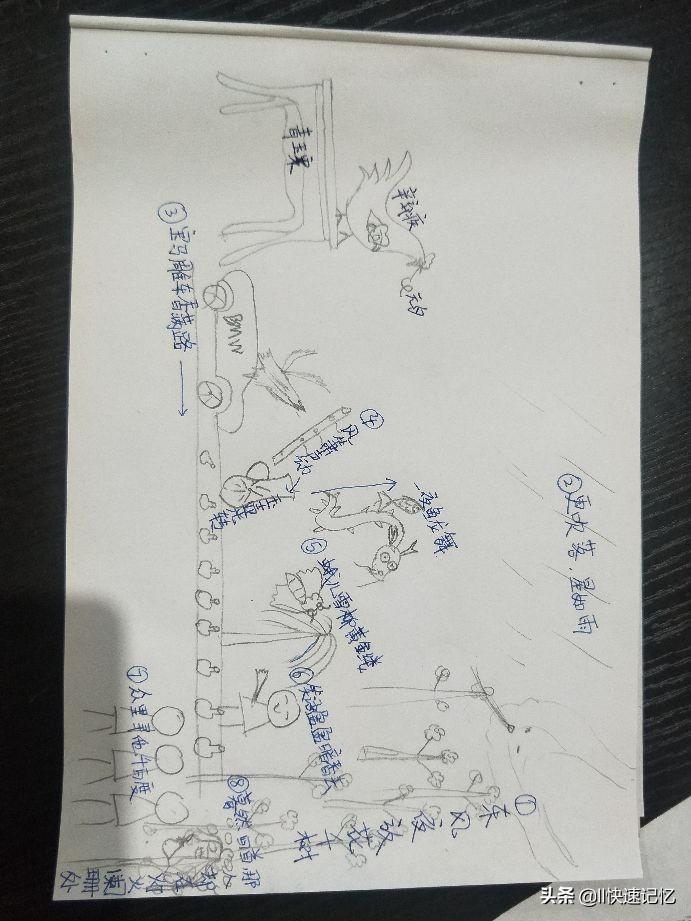 青玉案
辛弃疾
元夕
①东风夜放花千树
②更吹落,星如雨
③宝马雕车香满路
BMW
④凤箫声动
玉壶光转
一夜鱼龙舞
⑤蛾儿雪柳黄金缕
⑥笑语盈盈暗香去
⑦众里寻他千百度
⑧蓦然回首那
人
却在灯火
阑珊处
头条 @ll快速记忆